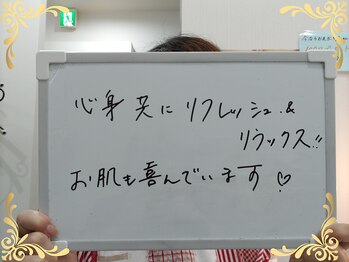 心身共にリフレッシュ&
リラックス!!
お肌も喜んでいます♡